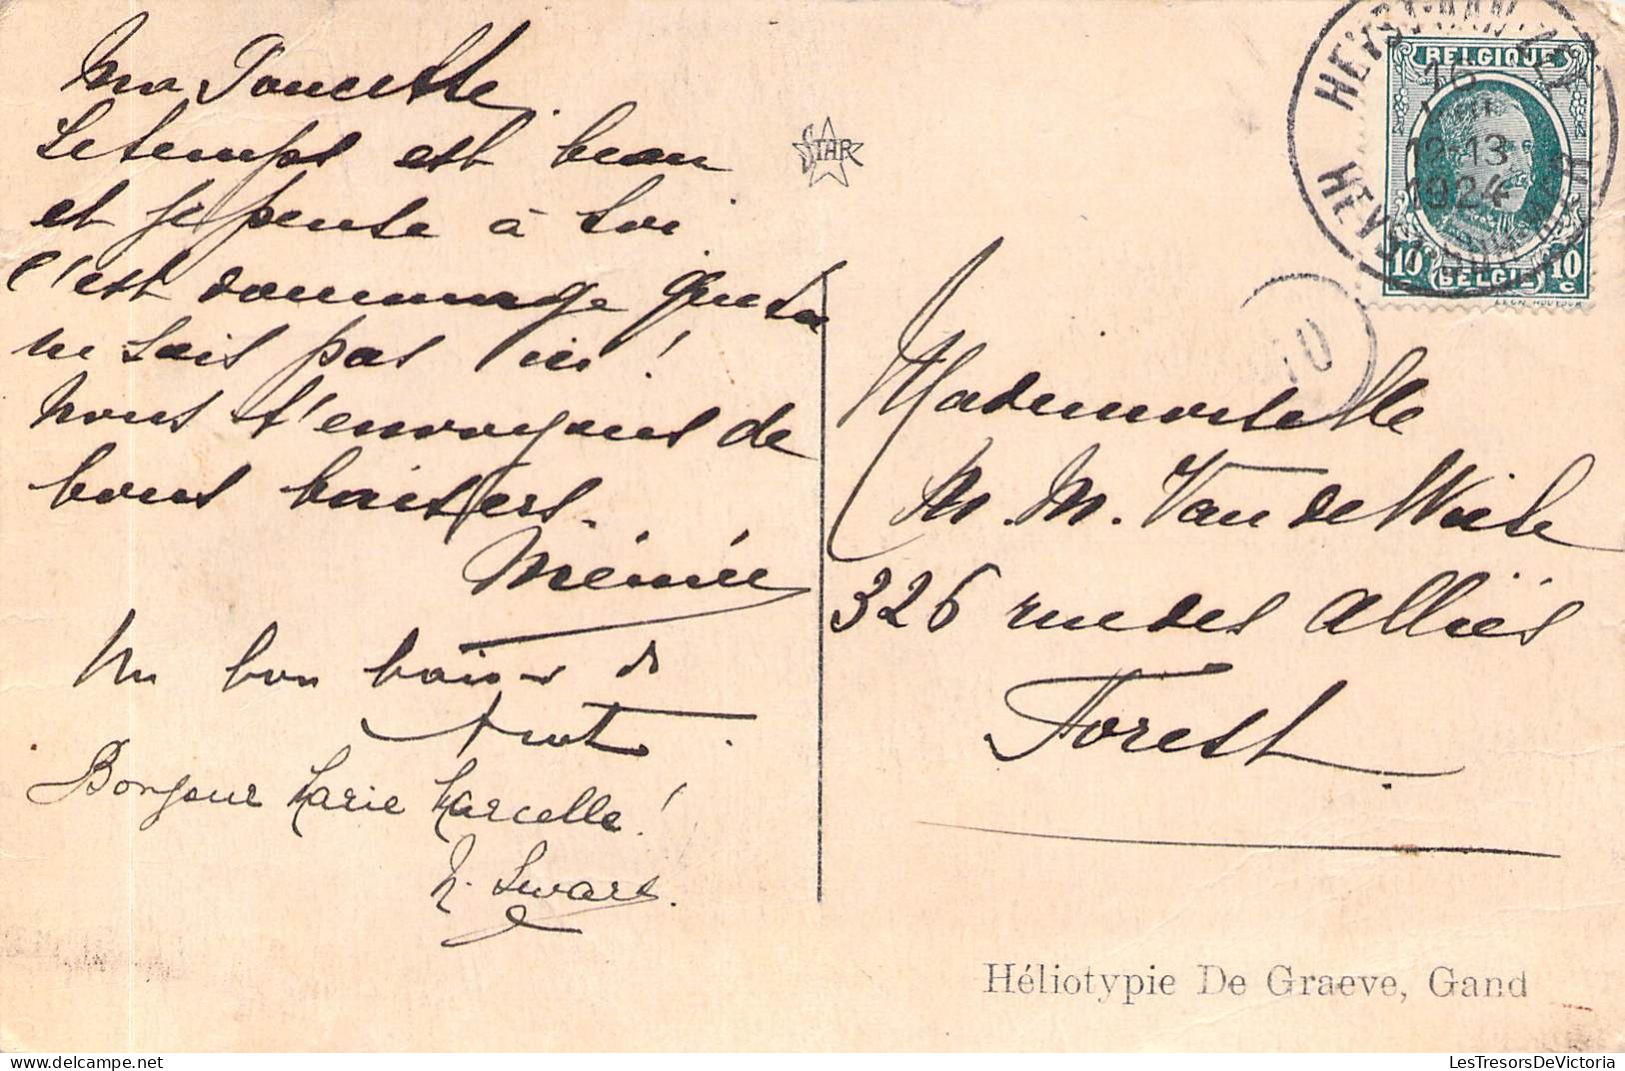 Ma Poucette.
Le temps est beau
et je pense à toi
c'est dommage que tu
ne sois pas ici!
Nous t'envoyons de
bons baisers.
Mémée
Un bon baiser de
Bonjour Marie Marcelle!
N. Swart.
STAR
HEYST
BELGIQUE
16
VIII
12-13
1924
HEYST
10 BELGIË 10
c
10
Mademoiselle
M. M. Van de Wiele
326 rue des Alliés
Forest
Héliotypie De Graeve, Gand
LesTresorsDeVictoria